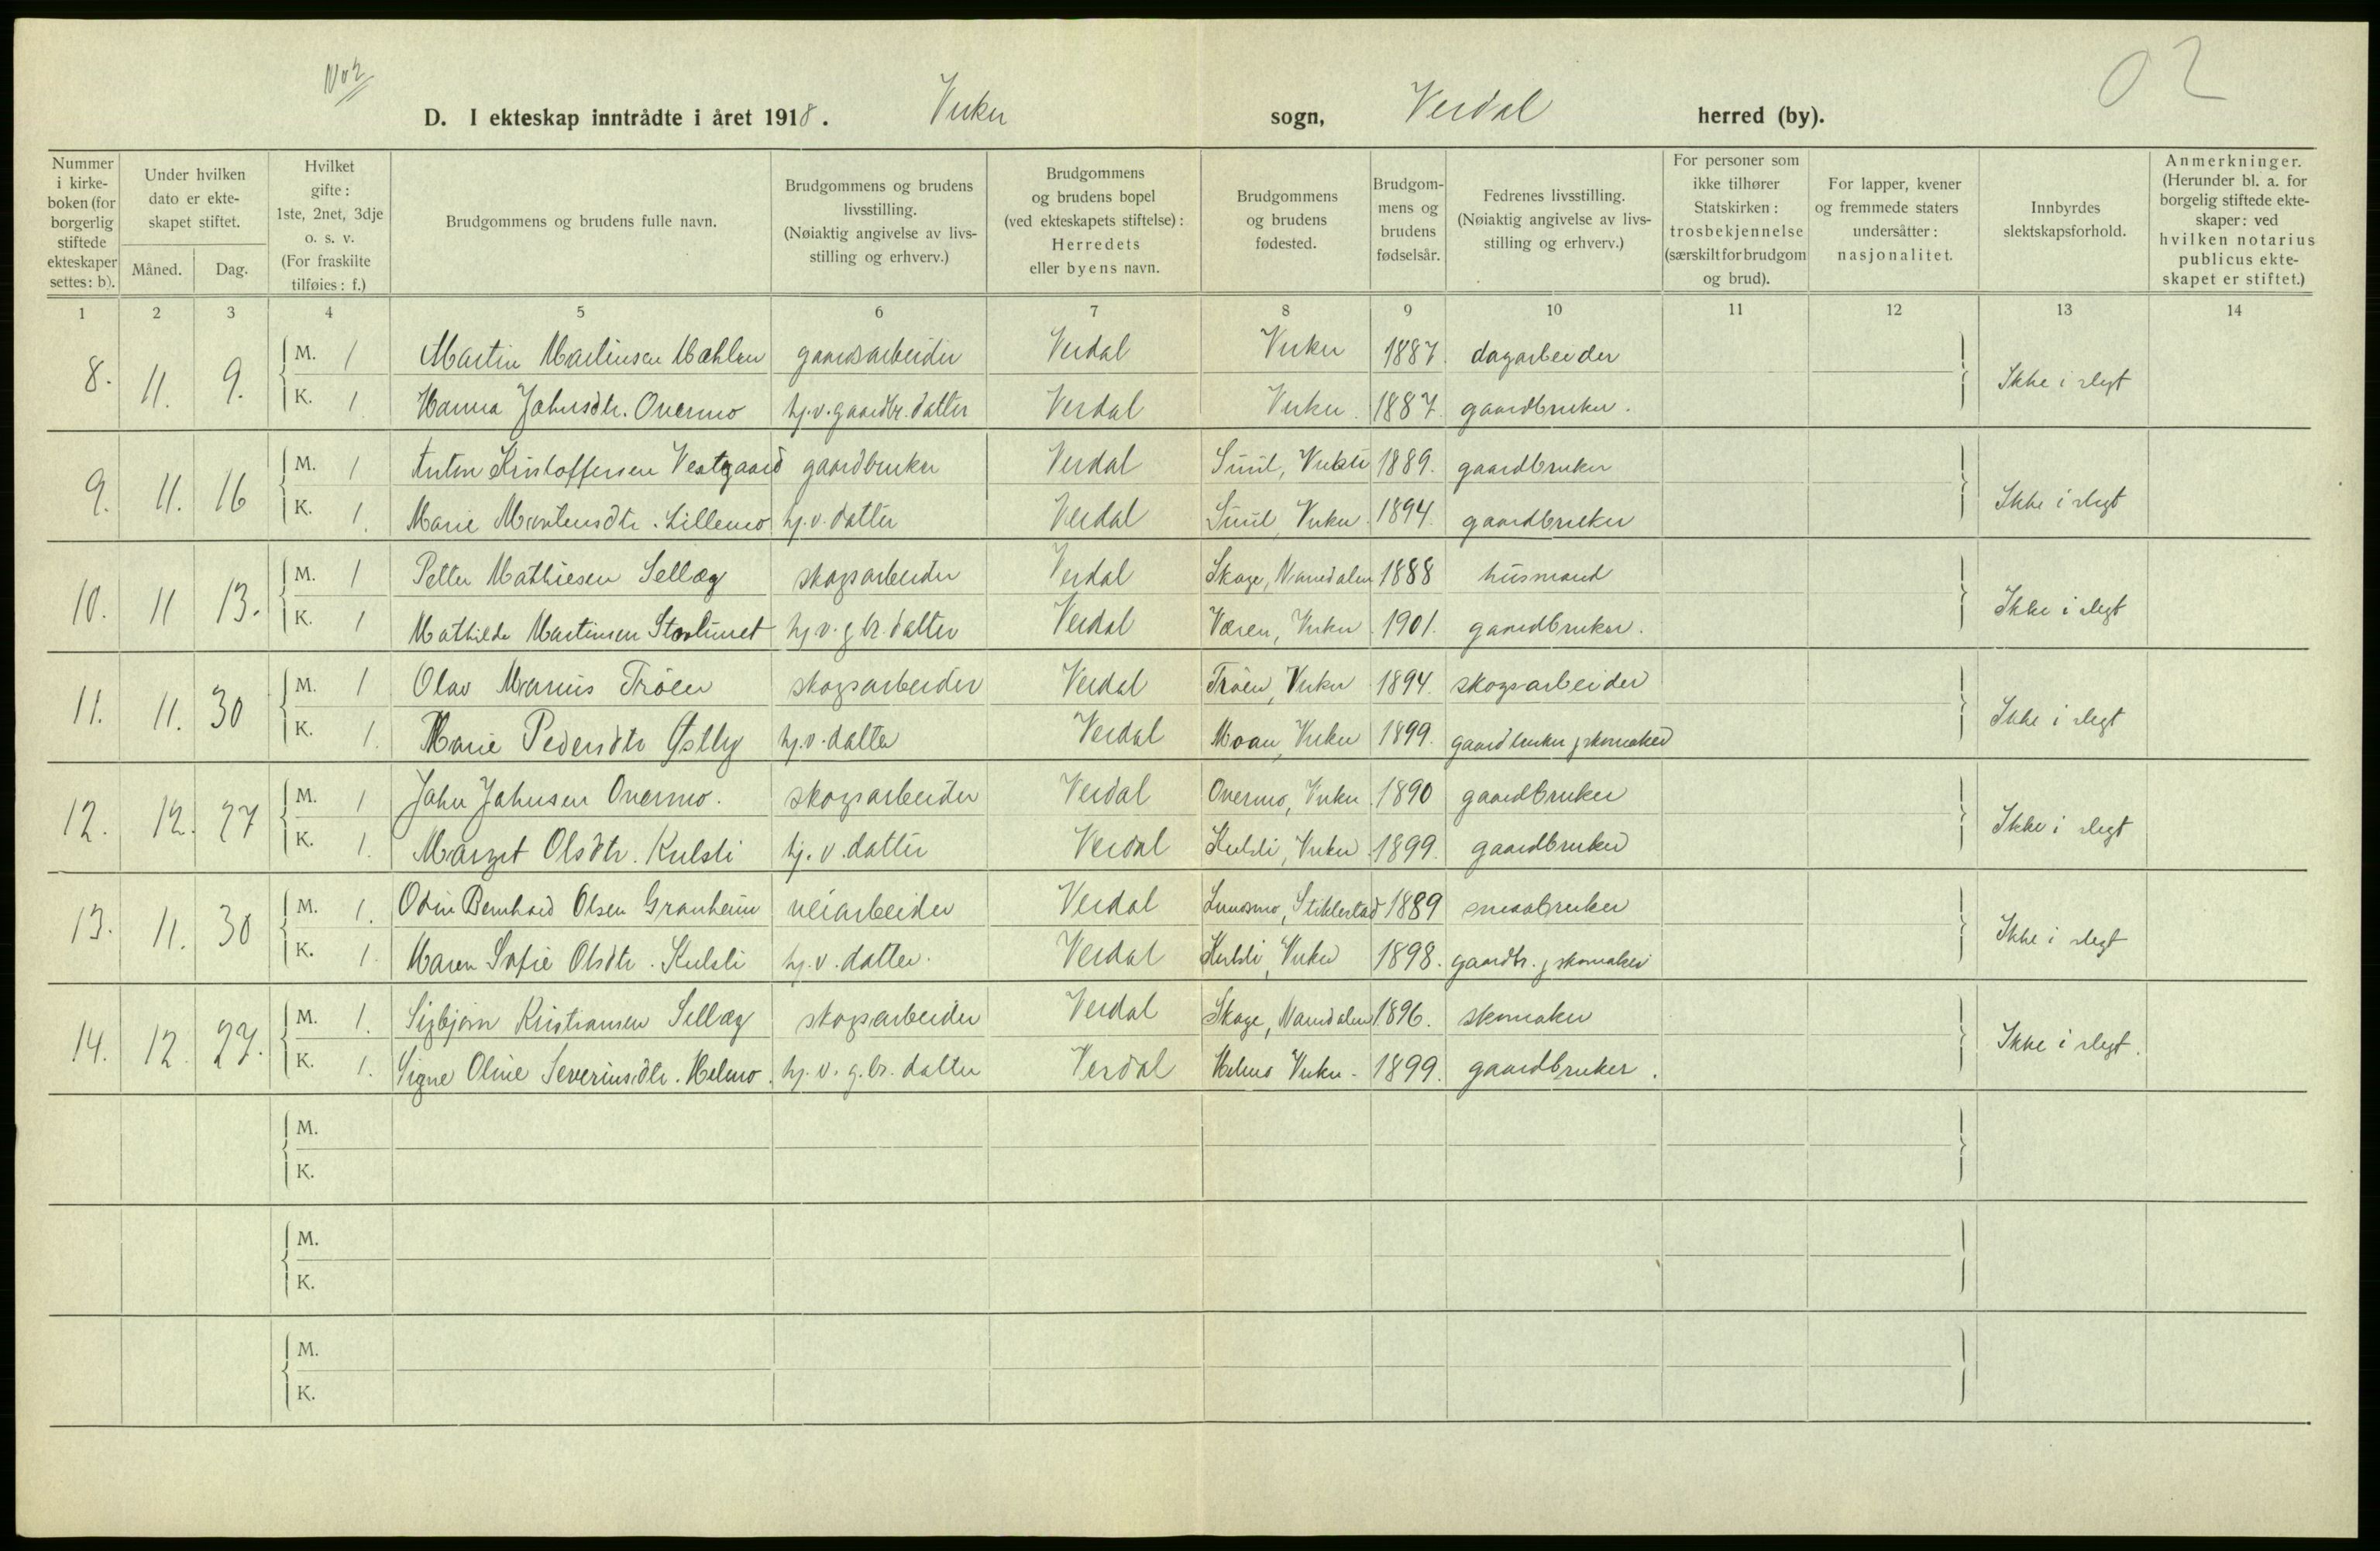 No 2
02
D. I ekteskap inntrådte i året 1918. Vuku sogn, Verdal herred (by).
Nummer i kirkeboken (for borgerlig stiftede ekteskaper settes: b).
Under hvilken dato er ekteskapet stiftet.
Måned. Dag.
Hvilket gifte: 1ste, 2net, 3dje o. s. v. (For fraskilte tilføies: f.)
Brudgommens og brudens fulle navn.
Brudgommens og brudens livsstilling. (Nøiaktig angivelse av livsstilling og erhverv.)
Brudgommens og brudens bopel (ved ekteskapets stiftelse): Herredets eller byens navn.
Brudgommens og brudens fødested.
Brudgommens og brudens fødselsår.
Fedrenes livsstilling. (Nøiaktig angivelse av livsstilling og erhverv.)
For personer som ikke tilhører Statskirken: trosbekjennelse (særskilt for brudgom og brud).
For lapper, kvener og fremmede staters undersåtter: nasjonalitet.
Innbyrdes slektskapsforhold.
Anmerkninger. (Herunder bl. a. for borgelig stiftede ekteskaper: ved hvilken notarius publicus ekteskapet er stiftet.)
1 2 3 4 5 6 7 8 9 10 11 12 13 14
8. 11. 9. M. 1 Martin Martinsen Mæhlen gaardsarbeider Verdal Vuku 1887. dagarbeider Ikke i slegt
K. 1 Hanna Johnsdtr. Overmo hj.v. gaardbr. datter Verdal Vuku. 1887. gaardbruker.
9. 11. 16 M. 1 Anton Kristoffersen Vestgaard gaardbruker Verdal Suul, Vuku 1889. gaardbruker Ikke i slegt
K. 1. Marie Martensdtr. Lillemo hj.v. datter Verdal Suul, Vuku. 1894. gaardbruker
10. 11 13. M. 1 Petter Mathiesen Sellæg skogsarbeider Verdal Skage, Namdalen 1888 husmand Ikke i slegt
K. 1 Mathilde Martinsen Storlunet hj.v. g.br. datter Verdal Væren, Vuku. 1901. gaardbruker.
11. 11. 30 M. 1 Olav Marius Trøen skogsarbeider Verdal Trøen, Vuku 1894. skogsarbeider Ikke i slegt
K. 1. Marie Pedersdtr Østby hj.v. datter Verdal Moan, Vuku 1899. gaardbruker & skomaker
12. 12. 27 M. 1 John Johnsen Overmo. skogsarbeider Verdal Overmo, Vuku. 1890 gaardbruker Ikke i slegt
K. 1. Margit Olsdtr. Kulsli hj. v. datter Verdal Kulsli, Vuku. 1899. gaardbruker
13. 11. 30 M. 1. Odin Bernhard Olsen Granheim veiarbeider Verdal Stiklestad 1889 Ikke i slegt
K. 1. Maren Sofie Olsdtr. Kulsli hj.v. datter. Verdal Kulsli, Vuku 1898. gaardbr. & skomaker
14. 12. 27. M. 1. Sigbjørn Kristiansen Sellæg skogsarbeider Verdal Skage, Namdalen 1896. skomaker Ikke i slegt.
K. 1. Signe Oline Severinsdtr. Helmo. hj. v. g.br. datter Verdal Helmo Vuku. 1899. gaardbruker.
M.
K.
M.
K.
M.
K.